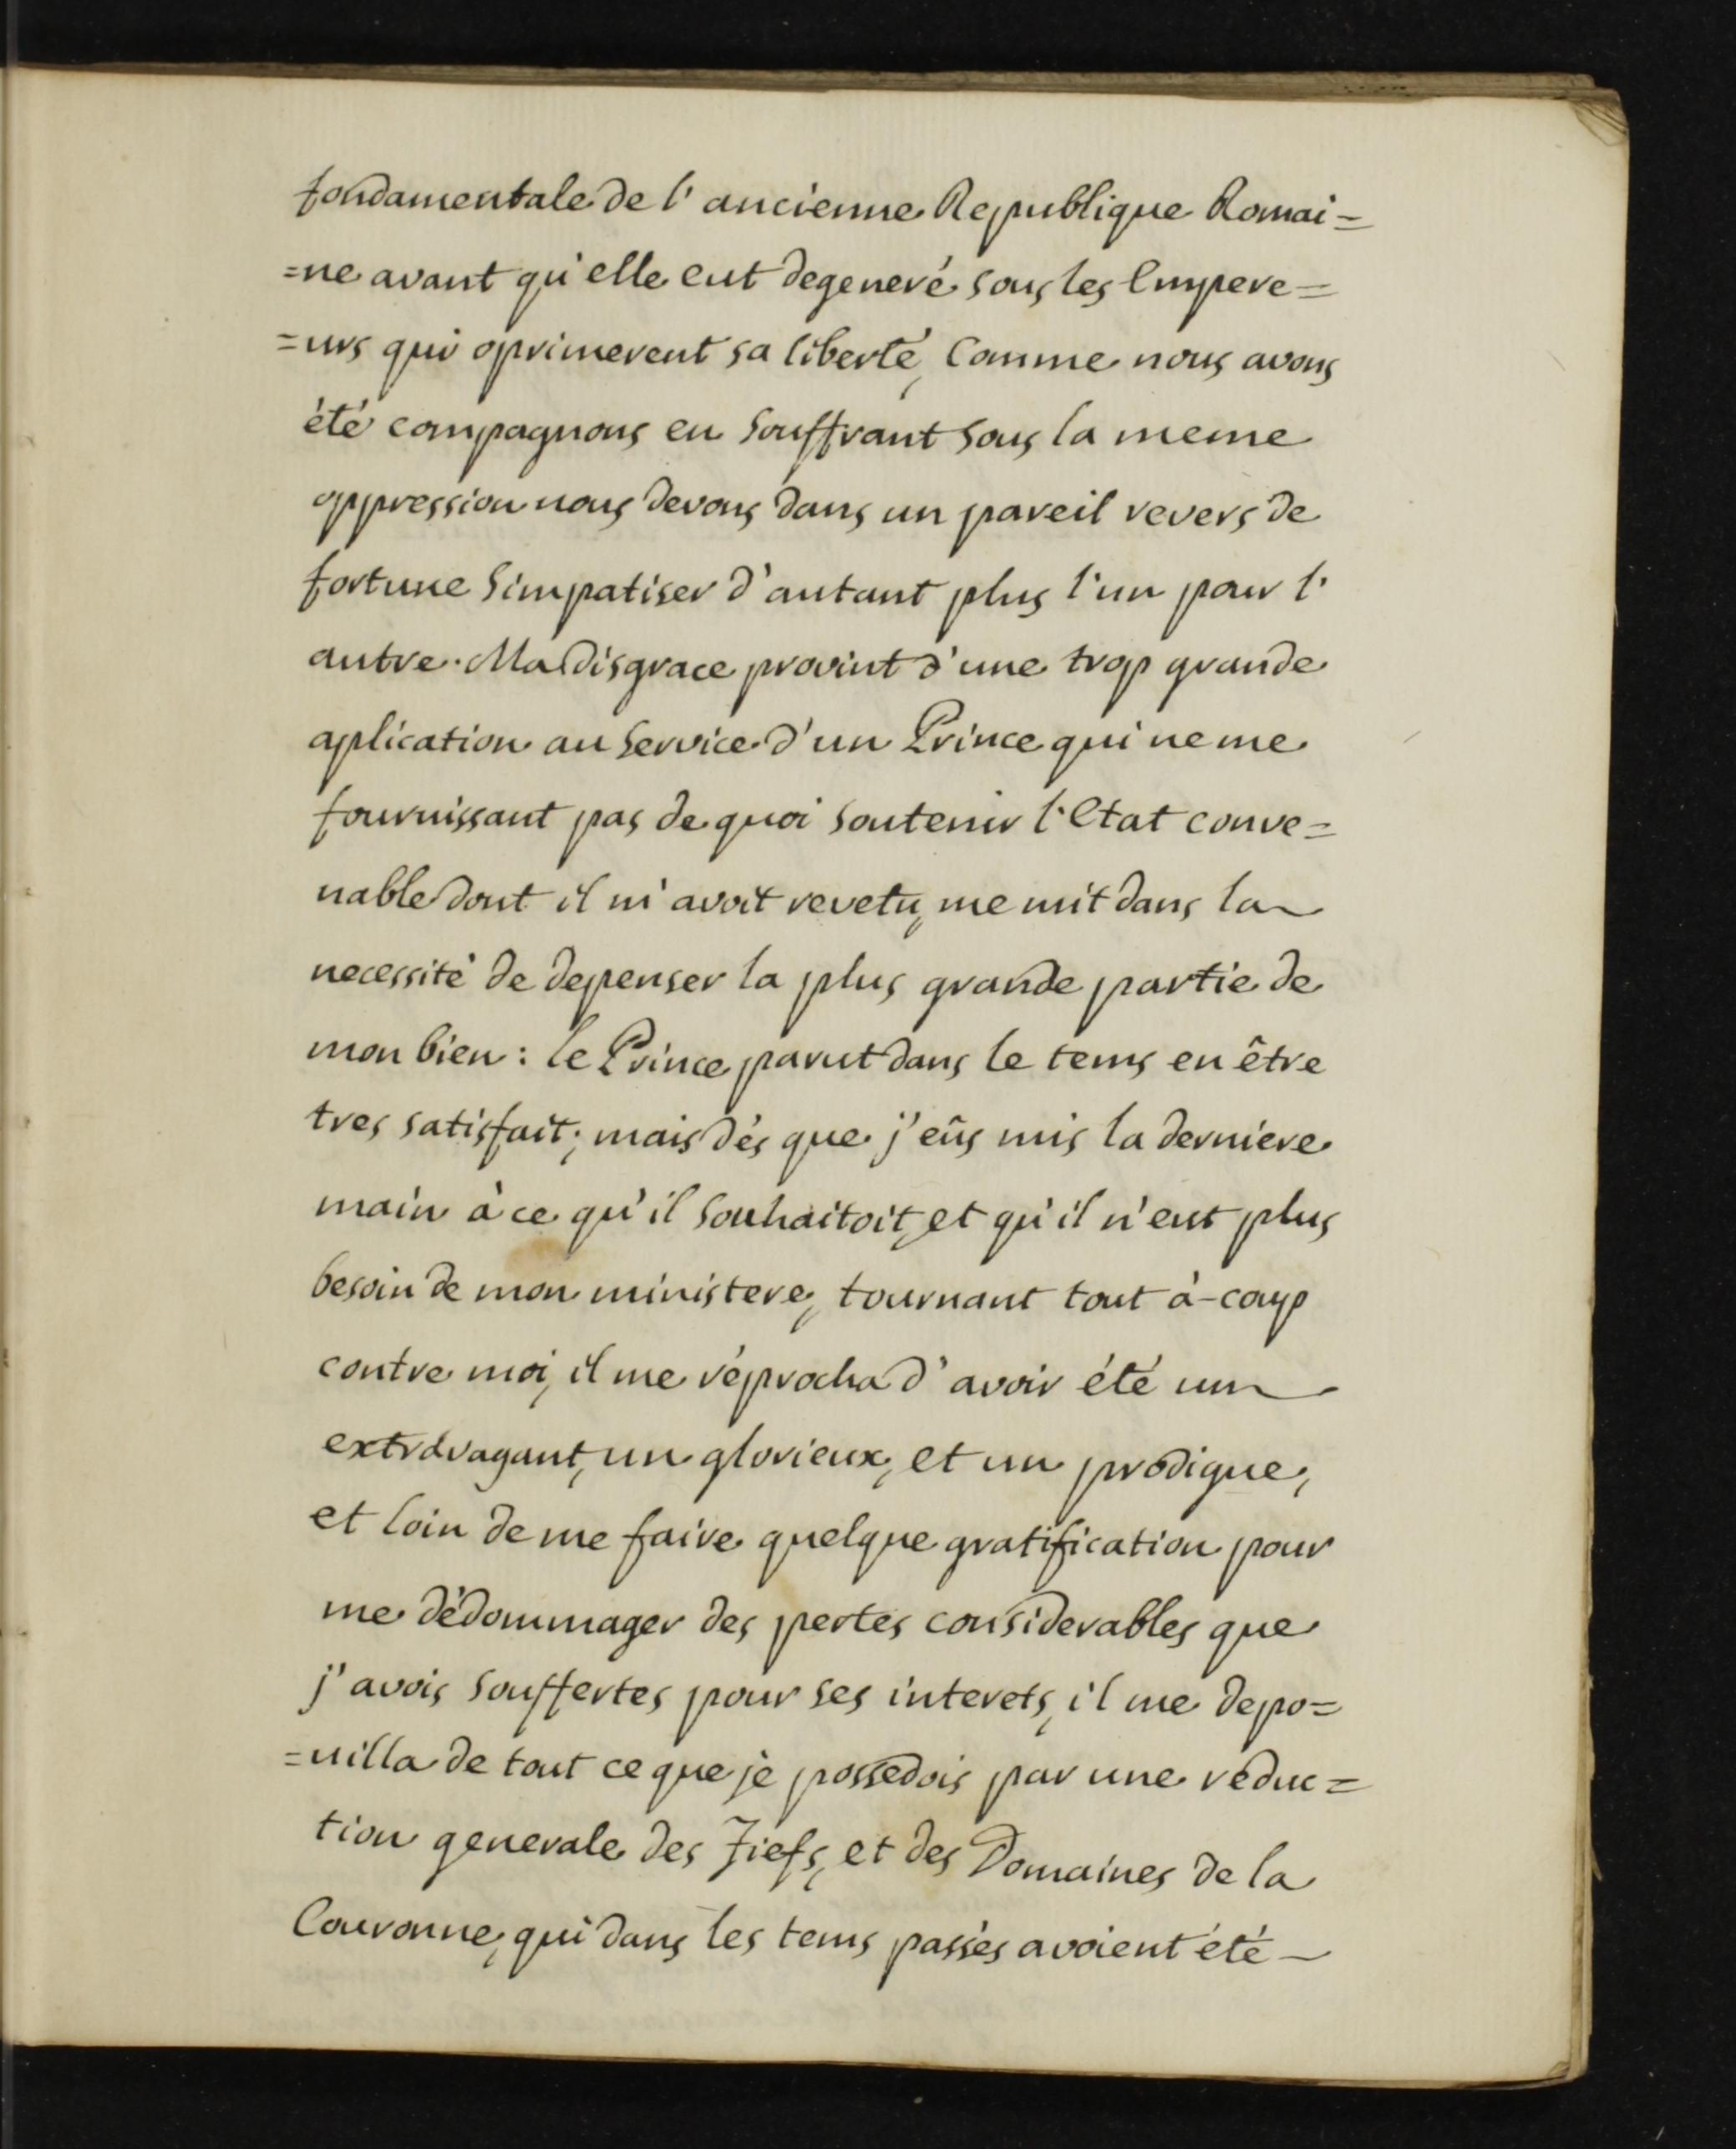 fondamentale de l' ancienne Republique Romai=
=ne avant qu' elle eut degeneré sous les Empere=
=urs qui oprimerent sa liberté, Comme nous avons
été compagnons en souffrant sous la meme
oppression nous devons dans un pareil revers de
fortune simpatiser d' autant plus l' un pour l'
autre. Ma disgrace provint d' une trop grande
aplication au service d' un Prince qui ne me
fournissant pas de quoi soutenir l' Etat conve=
nable dont il m' avoit revetu, me mit dans la
necessité de depenser la plus grande partie de
mon bien: le Prince parut dans le tems en être
tres satisfait; mais dés que j' eûs mis la derniere
main à ce qu' il souhaitoit, et qu' il n' eut plus
besoin de mon ministere, tournant tout à-coup
contre moi, il me réprocha d' avoir été un
extravagant, un glorieux, et un prodigue,
et loin de me faire quelque gratification pour
me dédommager des pertes considerables que
j' avois souffertes pour ses interets, il me depo=
=uilla de tout ce que je possedois par une réduc=
tion generale des Fiefs, et des Domaines de la
Couronne, qui dans les tems passés avoient été